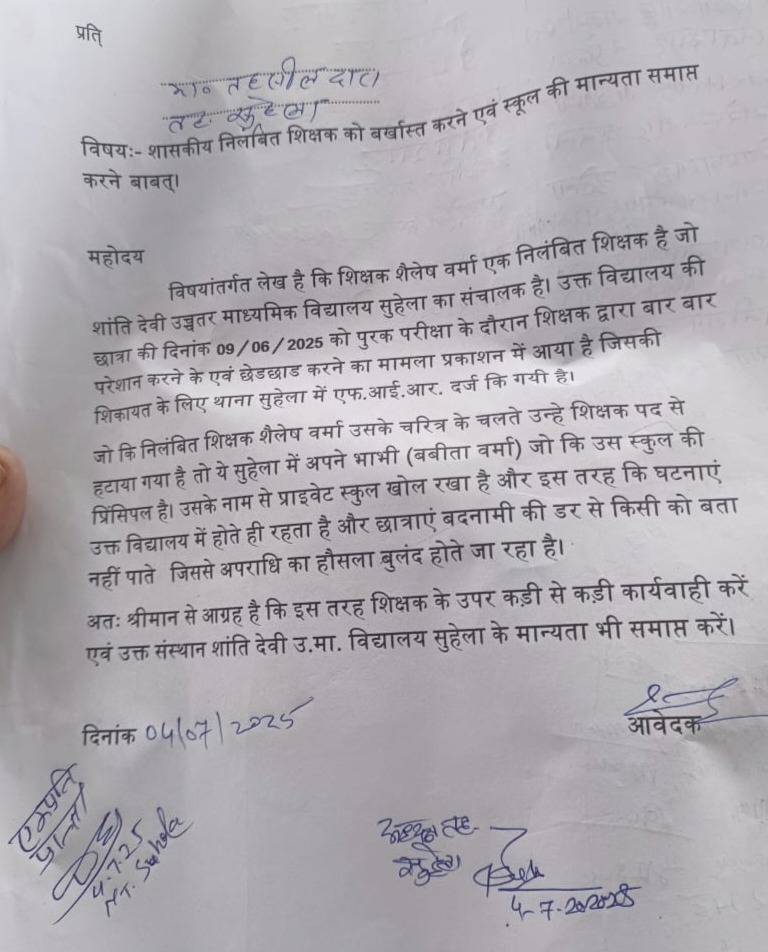 प्रति्
मा० तहसीलदार
तह. सुहेला
विषयः- शासकीय निलंबित शिक्षक को बर्खास्त करने एवं स्कूल की मान्यता समाप्त
करने बाबत्।
महोदय
विषयांतर्गत लेख है कि शिक्षक शैलेष वर्मा एक निलंबित शिक्षक है जो
शांति देवी उच्चतर माध्यमिक विद्यालय सुहेला का संचालक है। उक्त विद्यालय की
छात्रा की दिनांक 09/06/2025 को पुरक परीक्षा के दौरान शिक्षक द्वारा बार बार
परेशान करने के एवं छेडछाड करने का मामला प्रकाशन में आया है जिसकी
शिकायत के लिए थाना सुहेला में एफ.आई.आर. दर्ज कि गयी है।
जो कि निलंबित शिक्षक शैलेष वर्मा उसके चरित्र के चलते उन्हे शिक्षक पद से
हटाया गया है तो ये सुहेला में अपने भाभी (बबीता वर्मा) जो कि उस स्कुल की
प्रिंसिपल है। उसके नाम से प्राइवेट स्कुल खोल रखा है और इस तरह कि घटनाएं
उक्त विद्यालय में होते ही रहता है और छात्राएं बदनामी की डर से किसी को बता
नहीं पाते जिससे अपराधि का हौसला बुलंद होते जा रहा है।
अतः श्रीमान से आग्रह है कि इस तरह शिक्षक के उपर कड़ी से कड़ी कार्यवाही करें
एवं उक्त संस्थान शांति देवी उ.मा. विद्यालय सुहेला के मान्यता भी समाप्त करें।
दिनांक 04/07/2025
आवेदक
4.7.25
NT. Suhela
सुहेला
4-7-2025